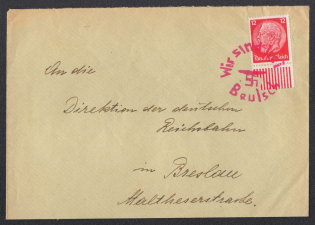 12 12
Deutsches Reich
Wir sind
An die
Direktion der deutschen
Reichsbahn
in Breslau
Maltheserstrasse.